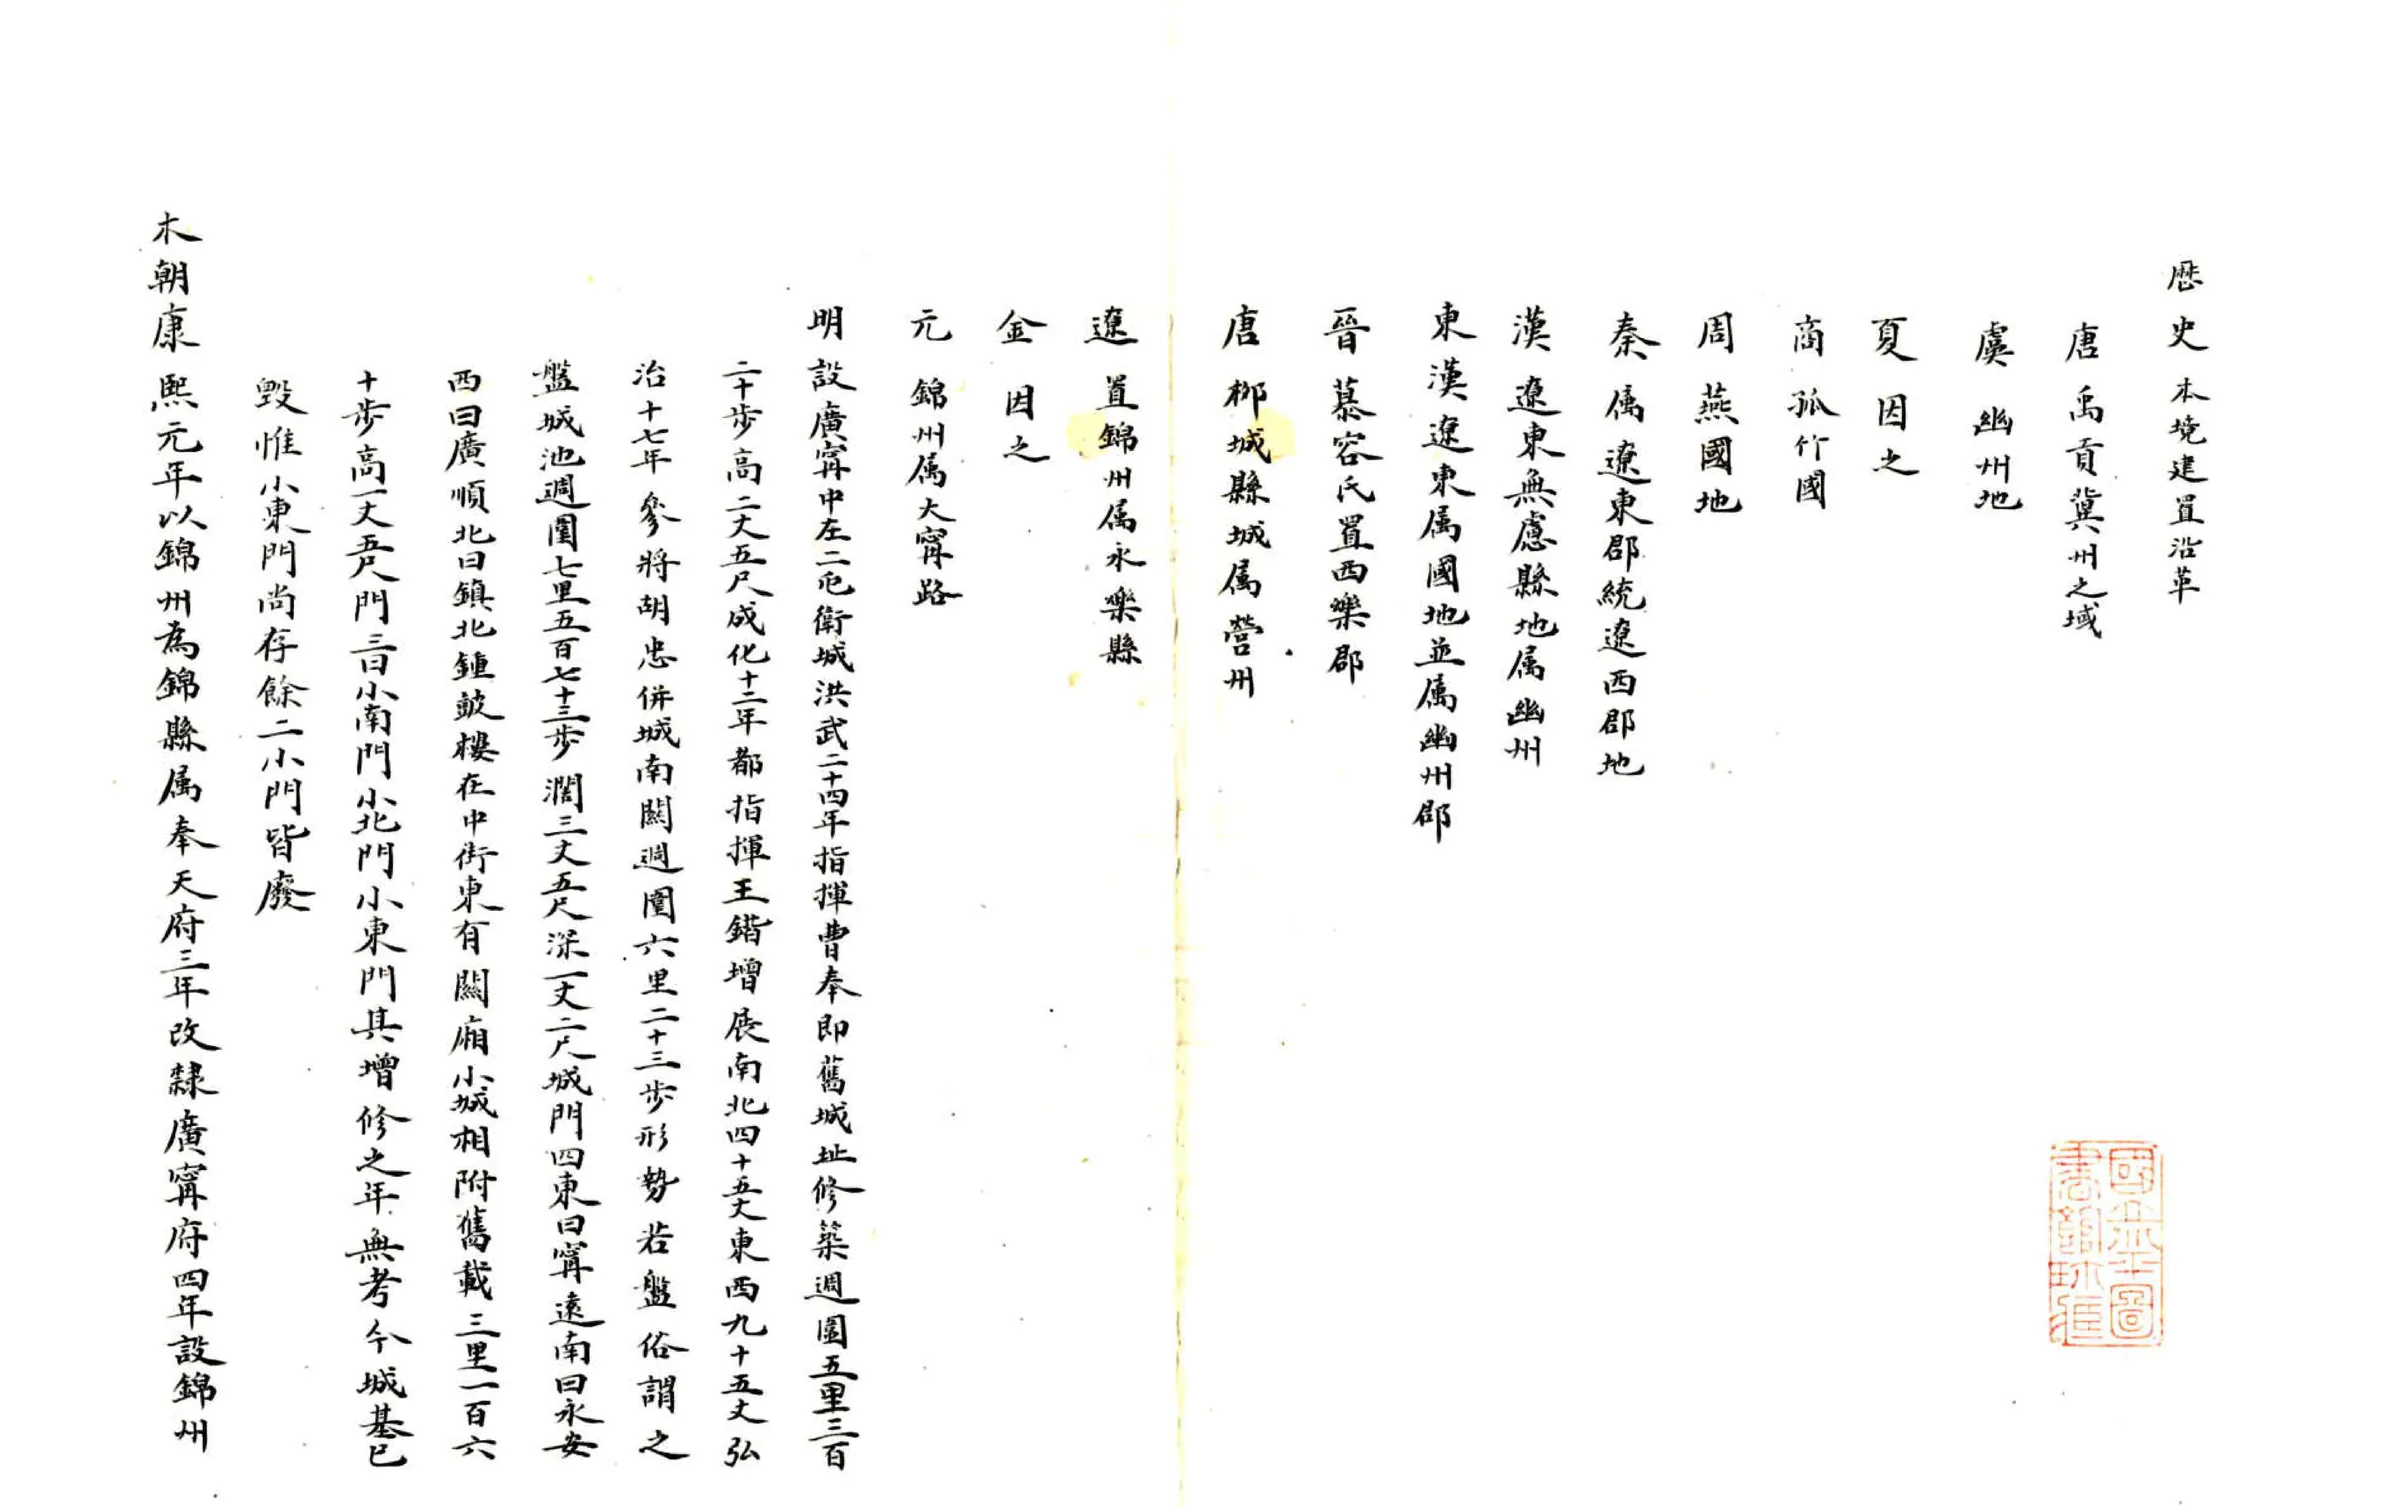 歷史 本境建置沿革
唐 禹貢冀州之域
虞 幽州地
夏 因之
商 孤竹國
周 燕國地
秦 属遼東郡統遼西郡地
漢 遼東無慮縣地属幽州
東漢遼東属國地並属幽州郡
晉 慕容氏置西樂郡
唐 柳城縣城属營州
遼 置錦州属永樂縣
金 因之
元 錦州属大寗路
明 設廣寗中左二屯衛城洪武二十四年指揮曹奉即舊城址修築週圍五里三百
二十步高二丈五尺成化十二年都指揮王鍇增展南北四十五丈東西九十五丈弘
治十七年參將胡忠併城南關週圍六里二十三步形勢若盤俗謂之
盤城池週圍七里五百七十三步濶三丈五尺深一丈二尺城門四東曰寗遠南曰永安
西曰廣順北曰鎮北鍾皷樓在中街東有關廂小城相附舊載三里一百六
十步高一丈五尺門三曰小南門小北門小東門其增修之年無考今城基已
毀惟小東門尚存餘二小門皆廢
本朝康熙元年以錦州為錦縣属奉天府三年改隸廣寗府四年設錦州
國立北平圖書館珍藏